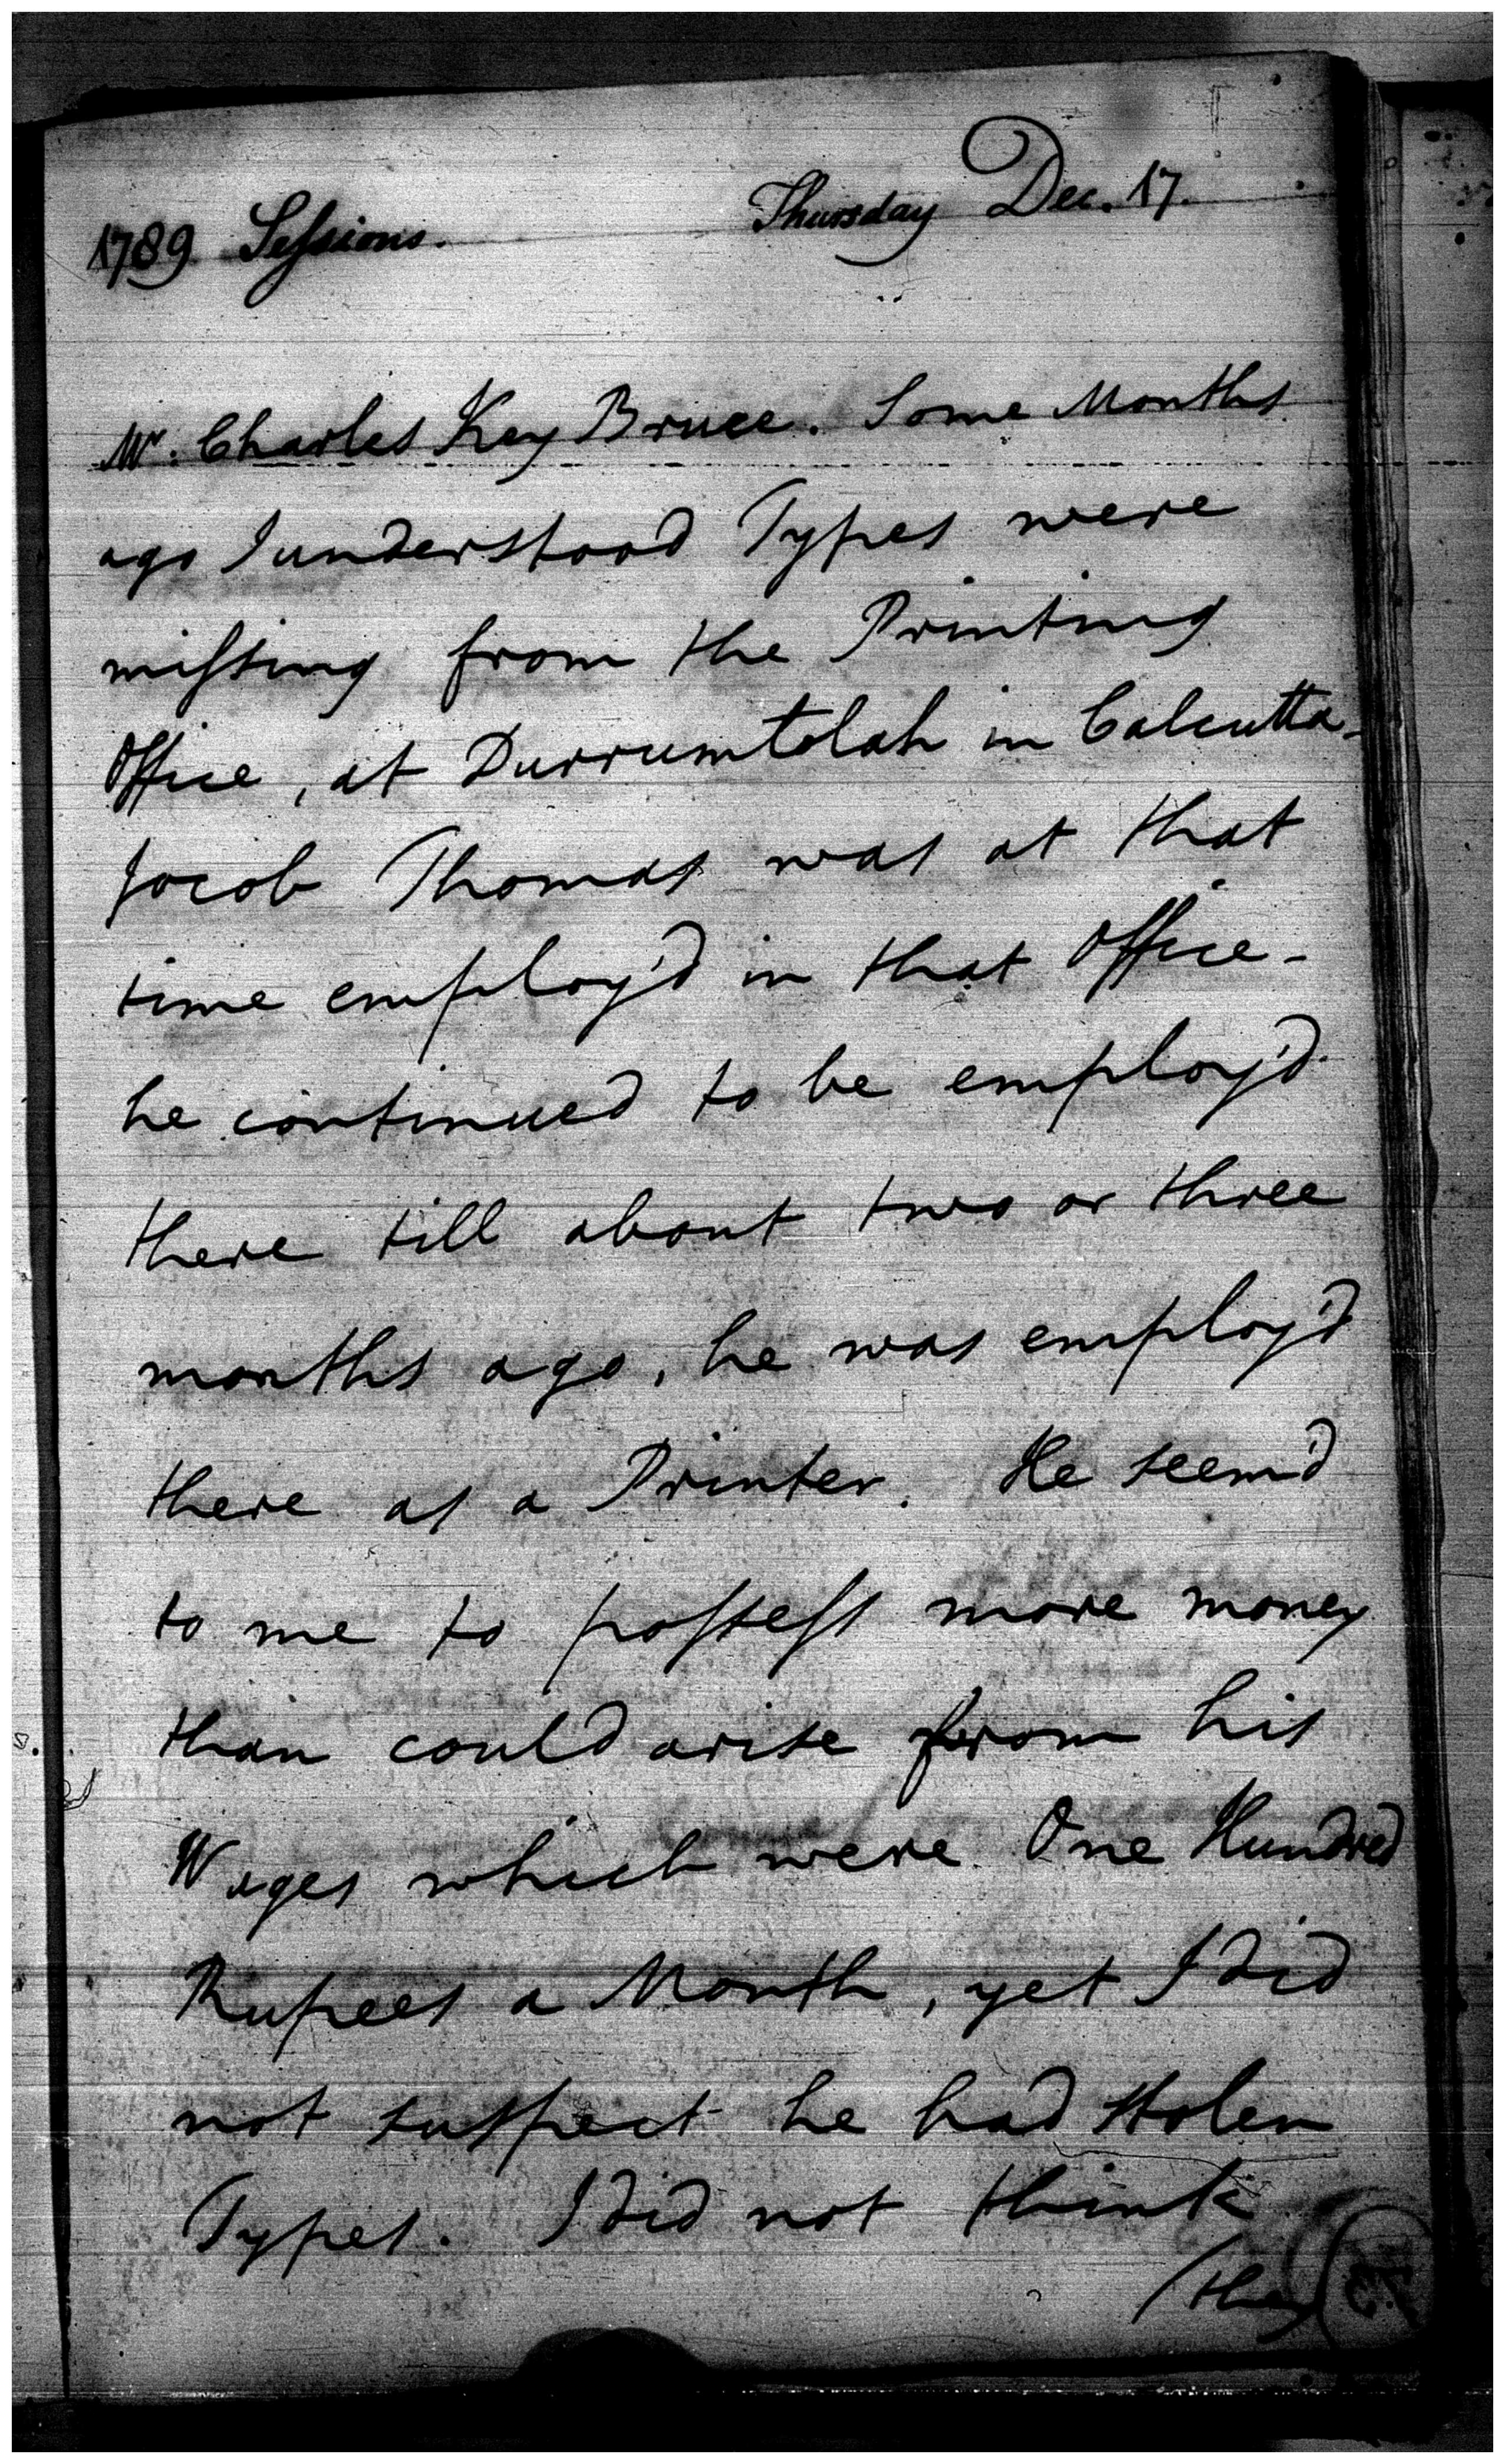 1789 Sessions. Thursday Dec. 17.
Mr. Charles Key Bruce. Some Months
ago I understood Types were
missing from the Printing
Office, at Durrumtolah in Calcutta_
Jacob Thomas was at that
time employ'd in that Office -
he continued to be employ'd
there till about two or three
months ago, he was employ'd
there as a Printer. He seem'd
to me to possess more money
than could arise from his
Wages which were One Hundred
Rupees a Month, yet I did
not suspect he had stolen
Types. I did not think
/they